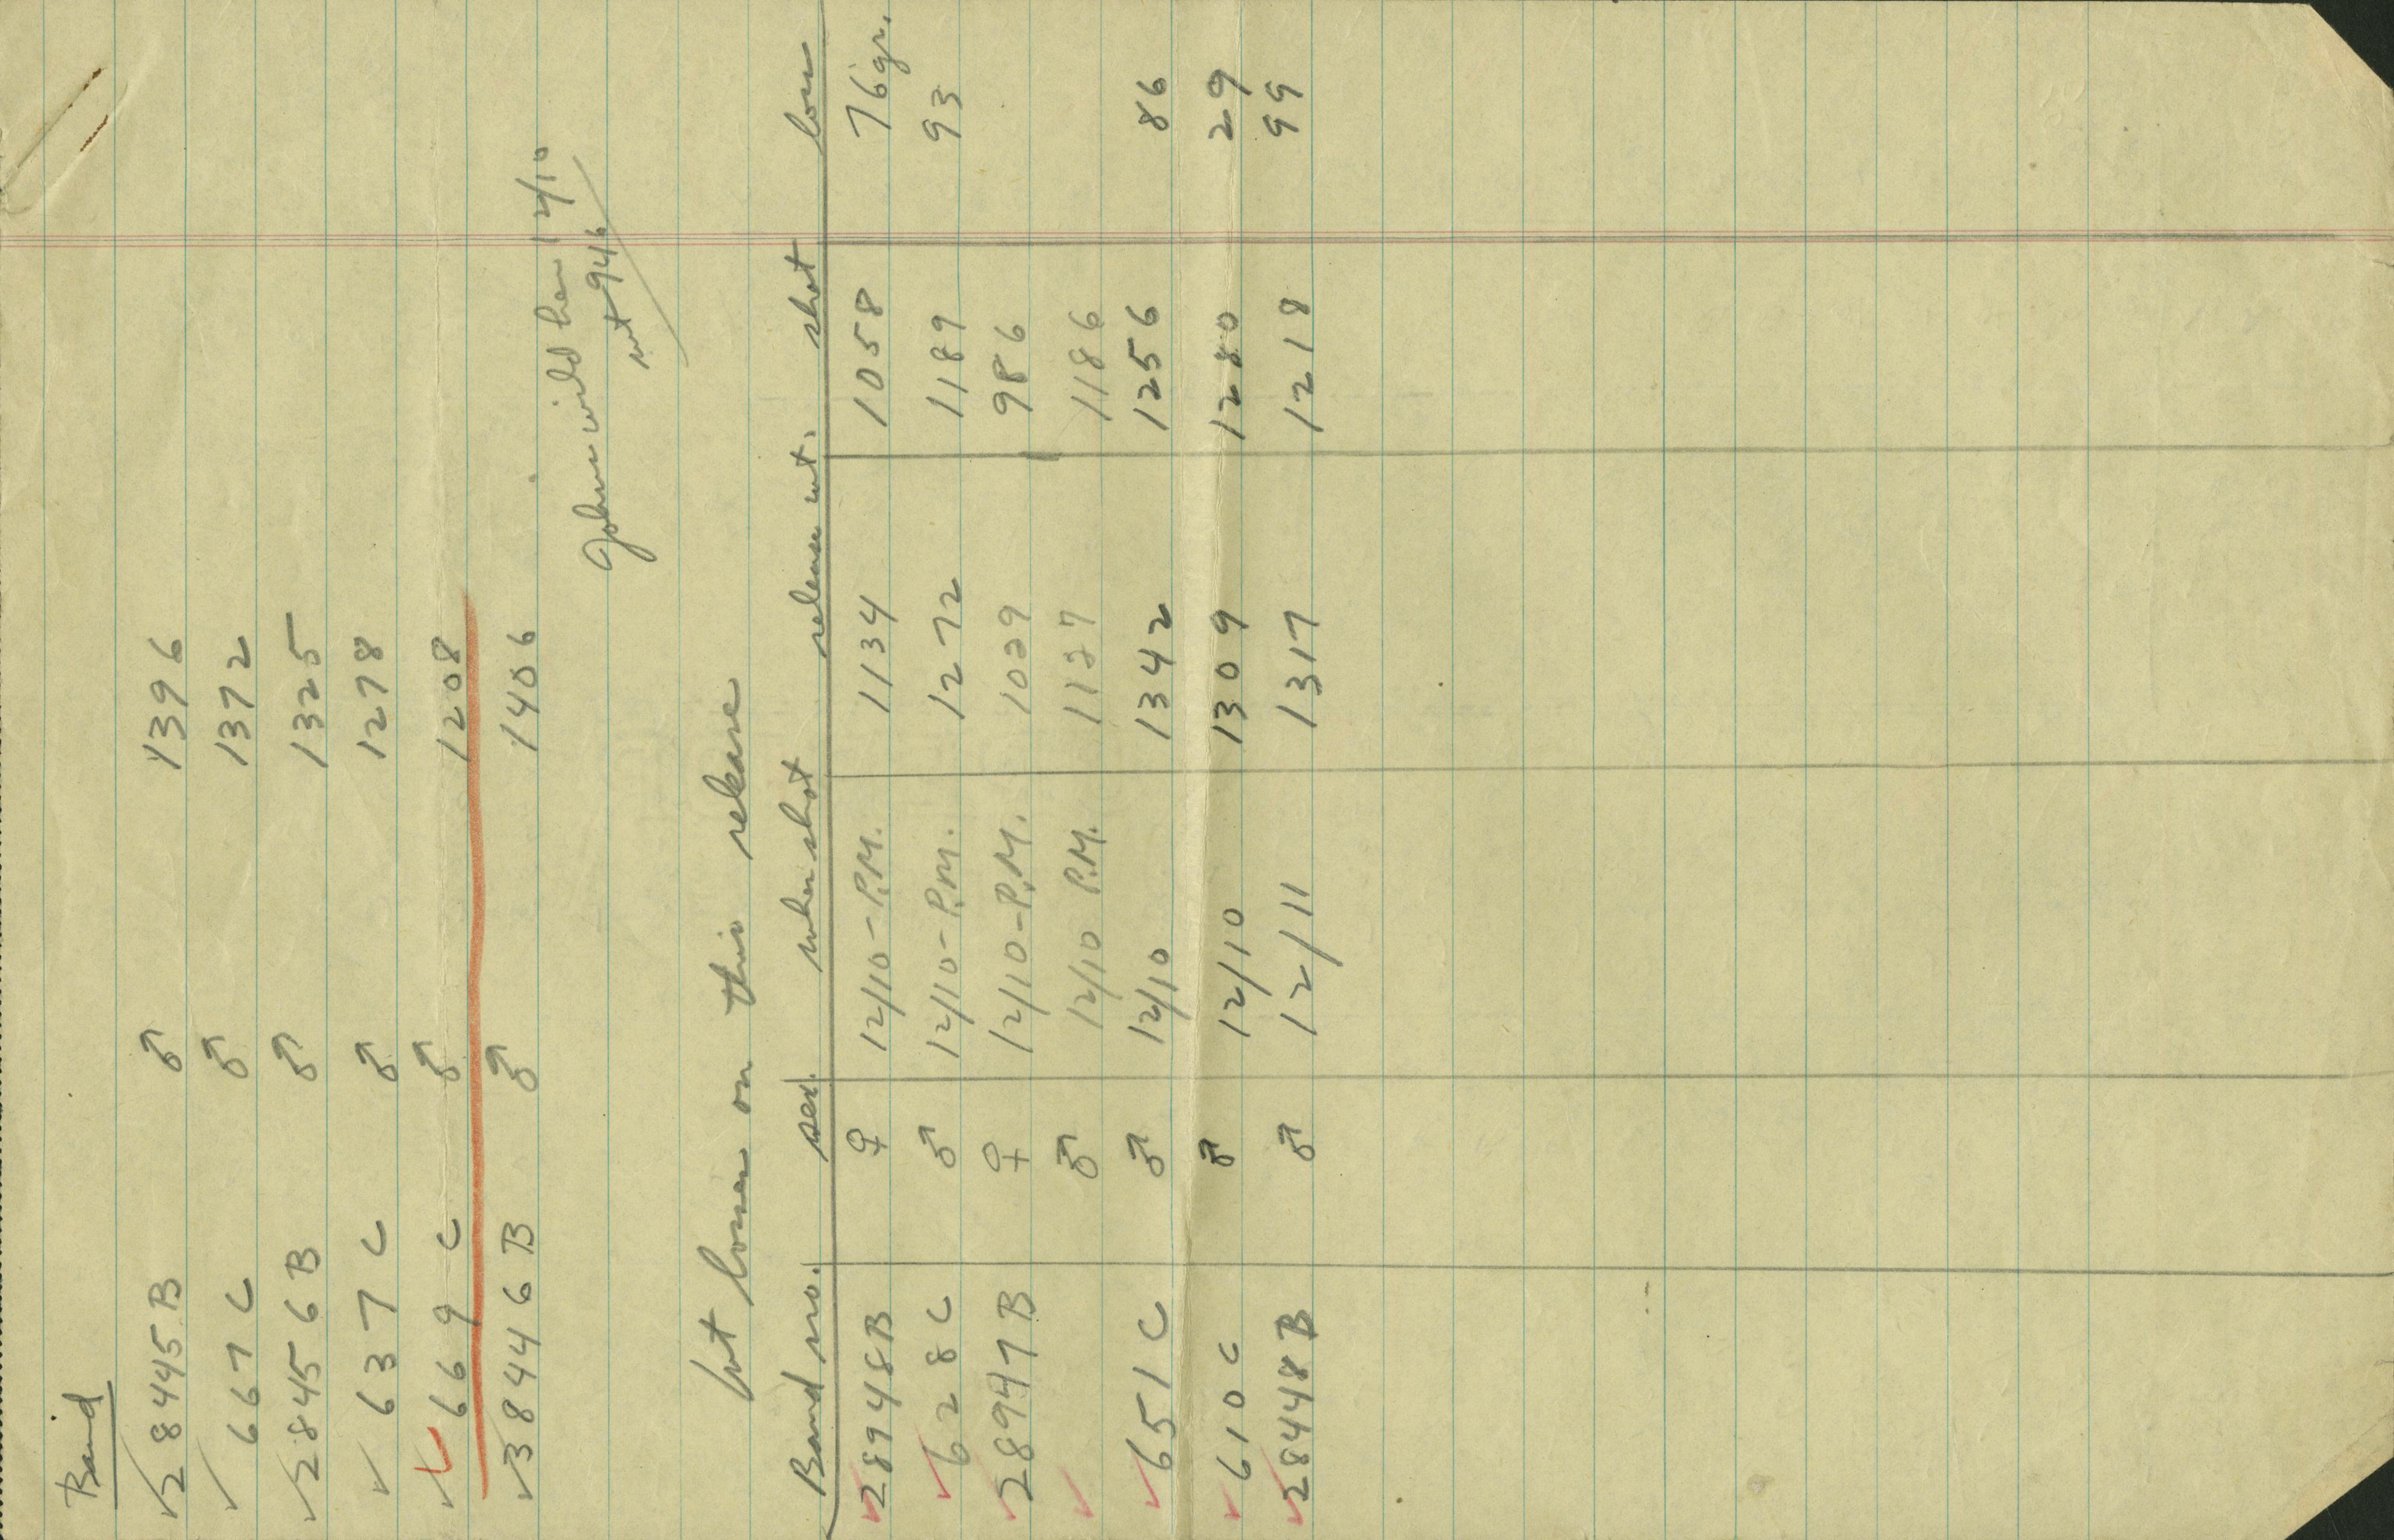 Band
✓28445B ♂ 1396
✓ 667 C ♂ 1372
✓28456B ♂ 1325
✓ 637 C ♂ 1278
✓ 669 C ♂ 1208
✓38446B ♂ 1406
wild hen 12/10
wt 946
wt losses on this release
Band no. sex. when shot release wt. shot loss
✓28948B ♀ 12/10-P.M. 1134 1058 76 gr.
✓ 628C ♂ 12/10-P.M. 1272 1189 93
✓28947B ♀ 12/10-P.M. 1029 986
✓ ♂ 12/10 P.M. 1127 1186
✓ 651 C ♂ 12/10 1342 1256 86
✓ 610 C ♂ 12/10 1309 1280 29
✓28448B ♂ 12/11 1317 1218 99